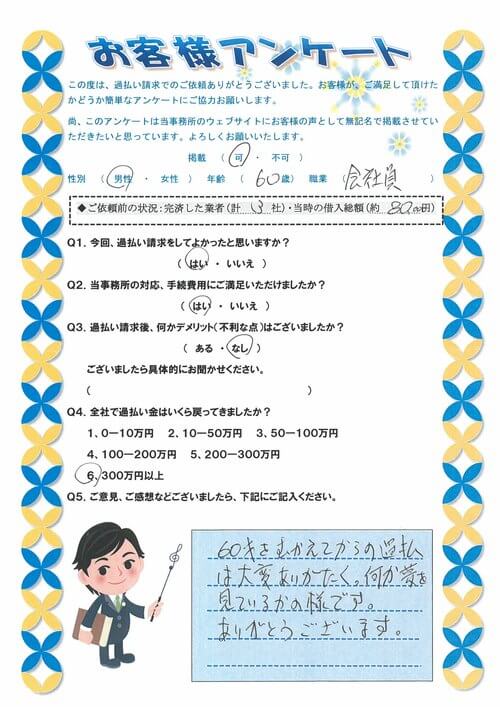 お客様アンケート
この度は、過払い請求でのご依頼ありがとうございました。お客様が、ご満足して頂けた
かどうか簡単なアンケートにご協力お願いします。
尚、このアンケートは当事務所のウェブサイトにお客様の声として無記名で掲載させてい
ただきたいと思っています。よろしくお願いいたします。
掲載 ( 可 ・ 不可 )
性別 ( 男性 ・ 女性 ) 年齢 ( 60歳) 職業 (会社員 )
◆ご依頼前の状況:完済した業者(計 3 社)・当時の借入総額(約 80万円)
Q1. 今回、過払い請求をしてよかったと思いますか?
( はい ・ いいえ )
Q2. 当事務所の対応、手続費用にご満足いただけましたか?
( はい ・ いいえ )
Q3. 過払い請求後、何かデメリット(不利な点)はございましたか?
( ある ・ なし )
ございましたら具体的にお聞かせください。
( )
Q4. 全社で過払い金はいくら戻ってきましたか?
1、0-10万円 2、10-50万円 3、50-100万円
4、100-200万円 5、200-300万円
6、300万円以上
Q5. ご意見、ご感想などございましたら、下記にご記入ください。
60才をむかえてからの過払
は大変ありがたく。何か夢を
見ているかの様です。
ありがとうございます。